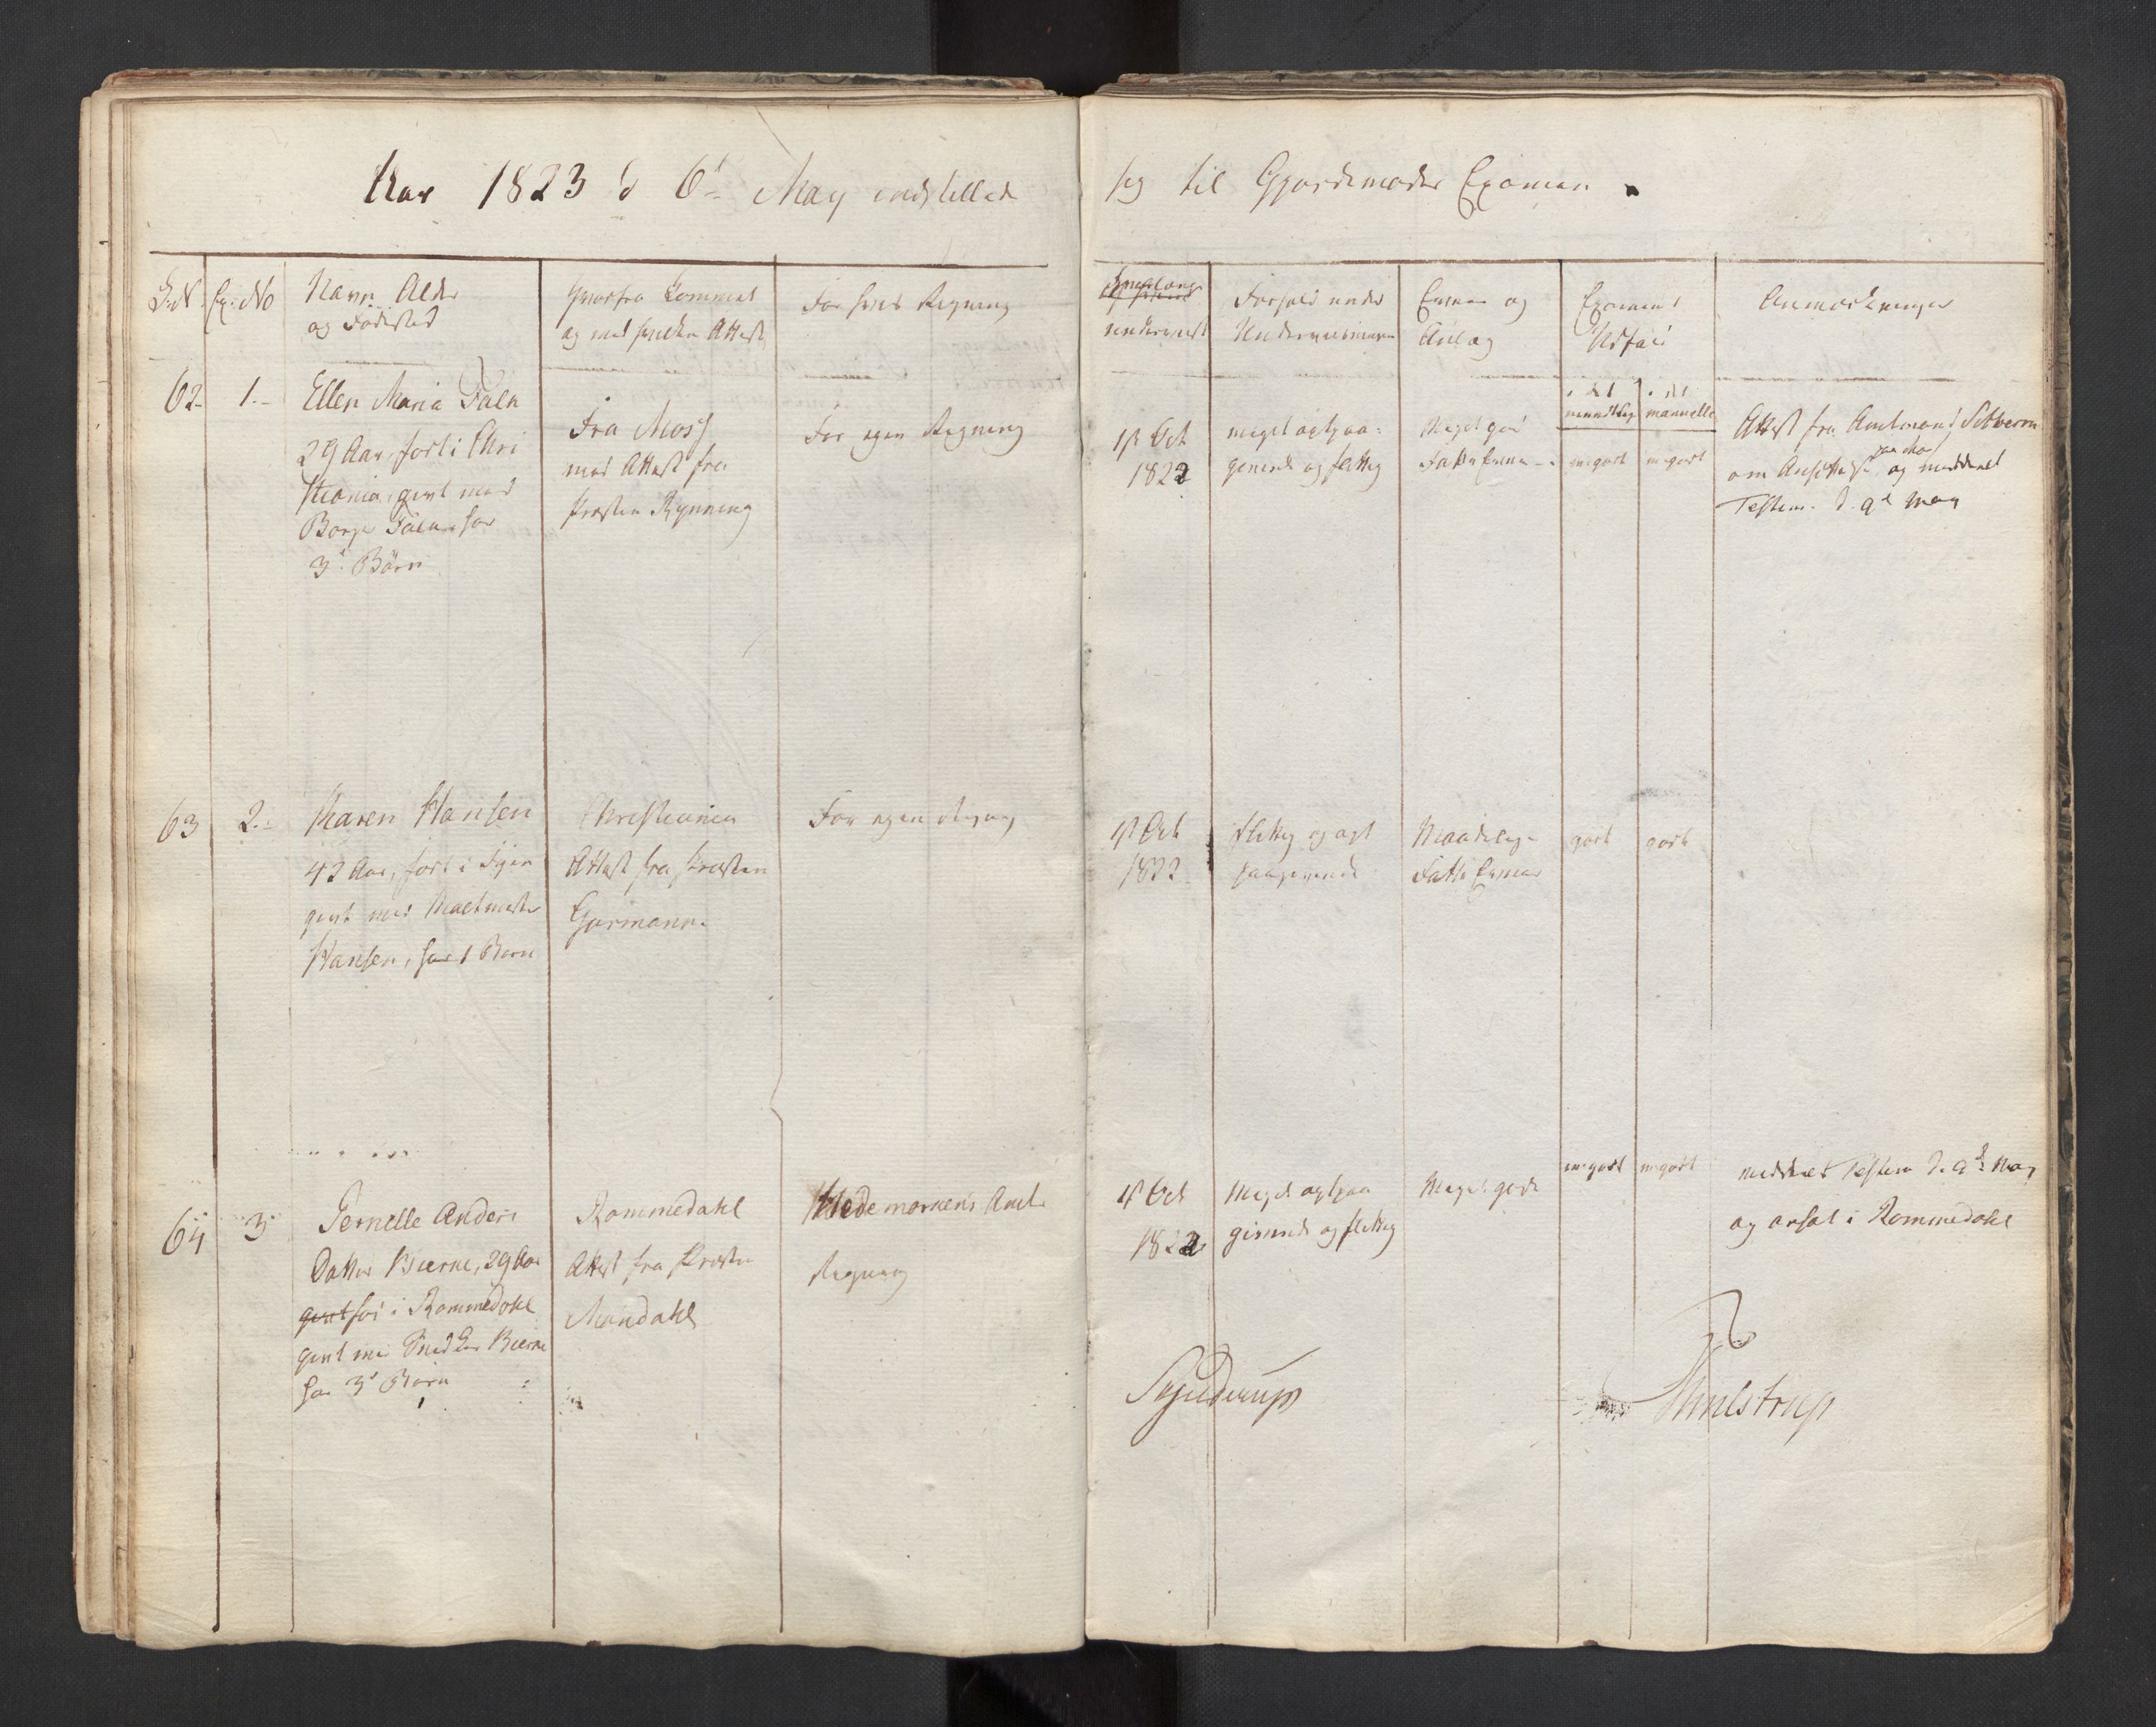 Aar 1823 d 6t May indstillede
sig til Gjordemoder Examen
L: N. Ex: No
Navn Alder
og Fødested
Hvorfra kommet
og med hvilken Attest
For hvis Regning
undervist
Forhold under
Underviisningen
Evne og
Anlag
Examens
Udfald
i det
mundtlige
i det
manuelle
Anmærkninger
62 1.
Ellen Maria Falk
29 Aar, født i Chri
stiania, givt med
Borge Falk har
3 Børn
Fra Moss
med Attest fra
Præsten Rynning
For egen Regning
1st Oct
1822
meget agtpaa-
givende og flittig
Meget god
Fatte Evne
m: godt
m: godt
Attest fra Amtmand Sibbern
om Ansættelse paa Mos og meddelt
Testim. d. 9d May
63 2.
Maren Hansen
42 Aar, født i Fyen
givt med
Hansen, har 1 Barn
Christiania
Attest fra Præsten
Garmann.
For egen Regning
1st Oct
1822
flittig og agt
paagivende
Maadelige
Fatte Evner
godt
godt
64 3
Pernelle Anders
Datter Bierke, 29 Aar
givt fød i Rommedahl
givt med Snedker Bierke
har 3 Børn
Rommedahl
Attest fra Præsten
Mandahl
Hedemarkens Amts
Regning
1st Oct
1822
Meget agtpaa
givende og flittig
Meget gode
m: godt
m: godt
meddelt Testim d. 9d May
og ansat i Rommedahl
Skjelderup
Thulstrup